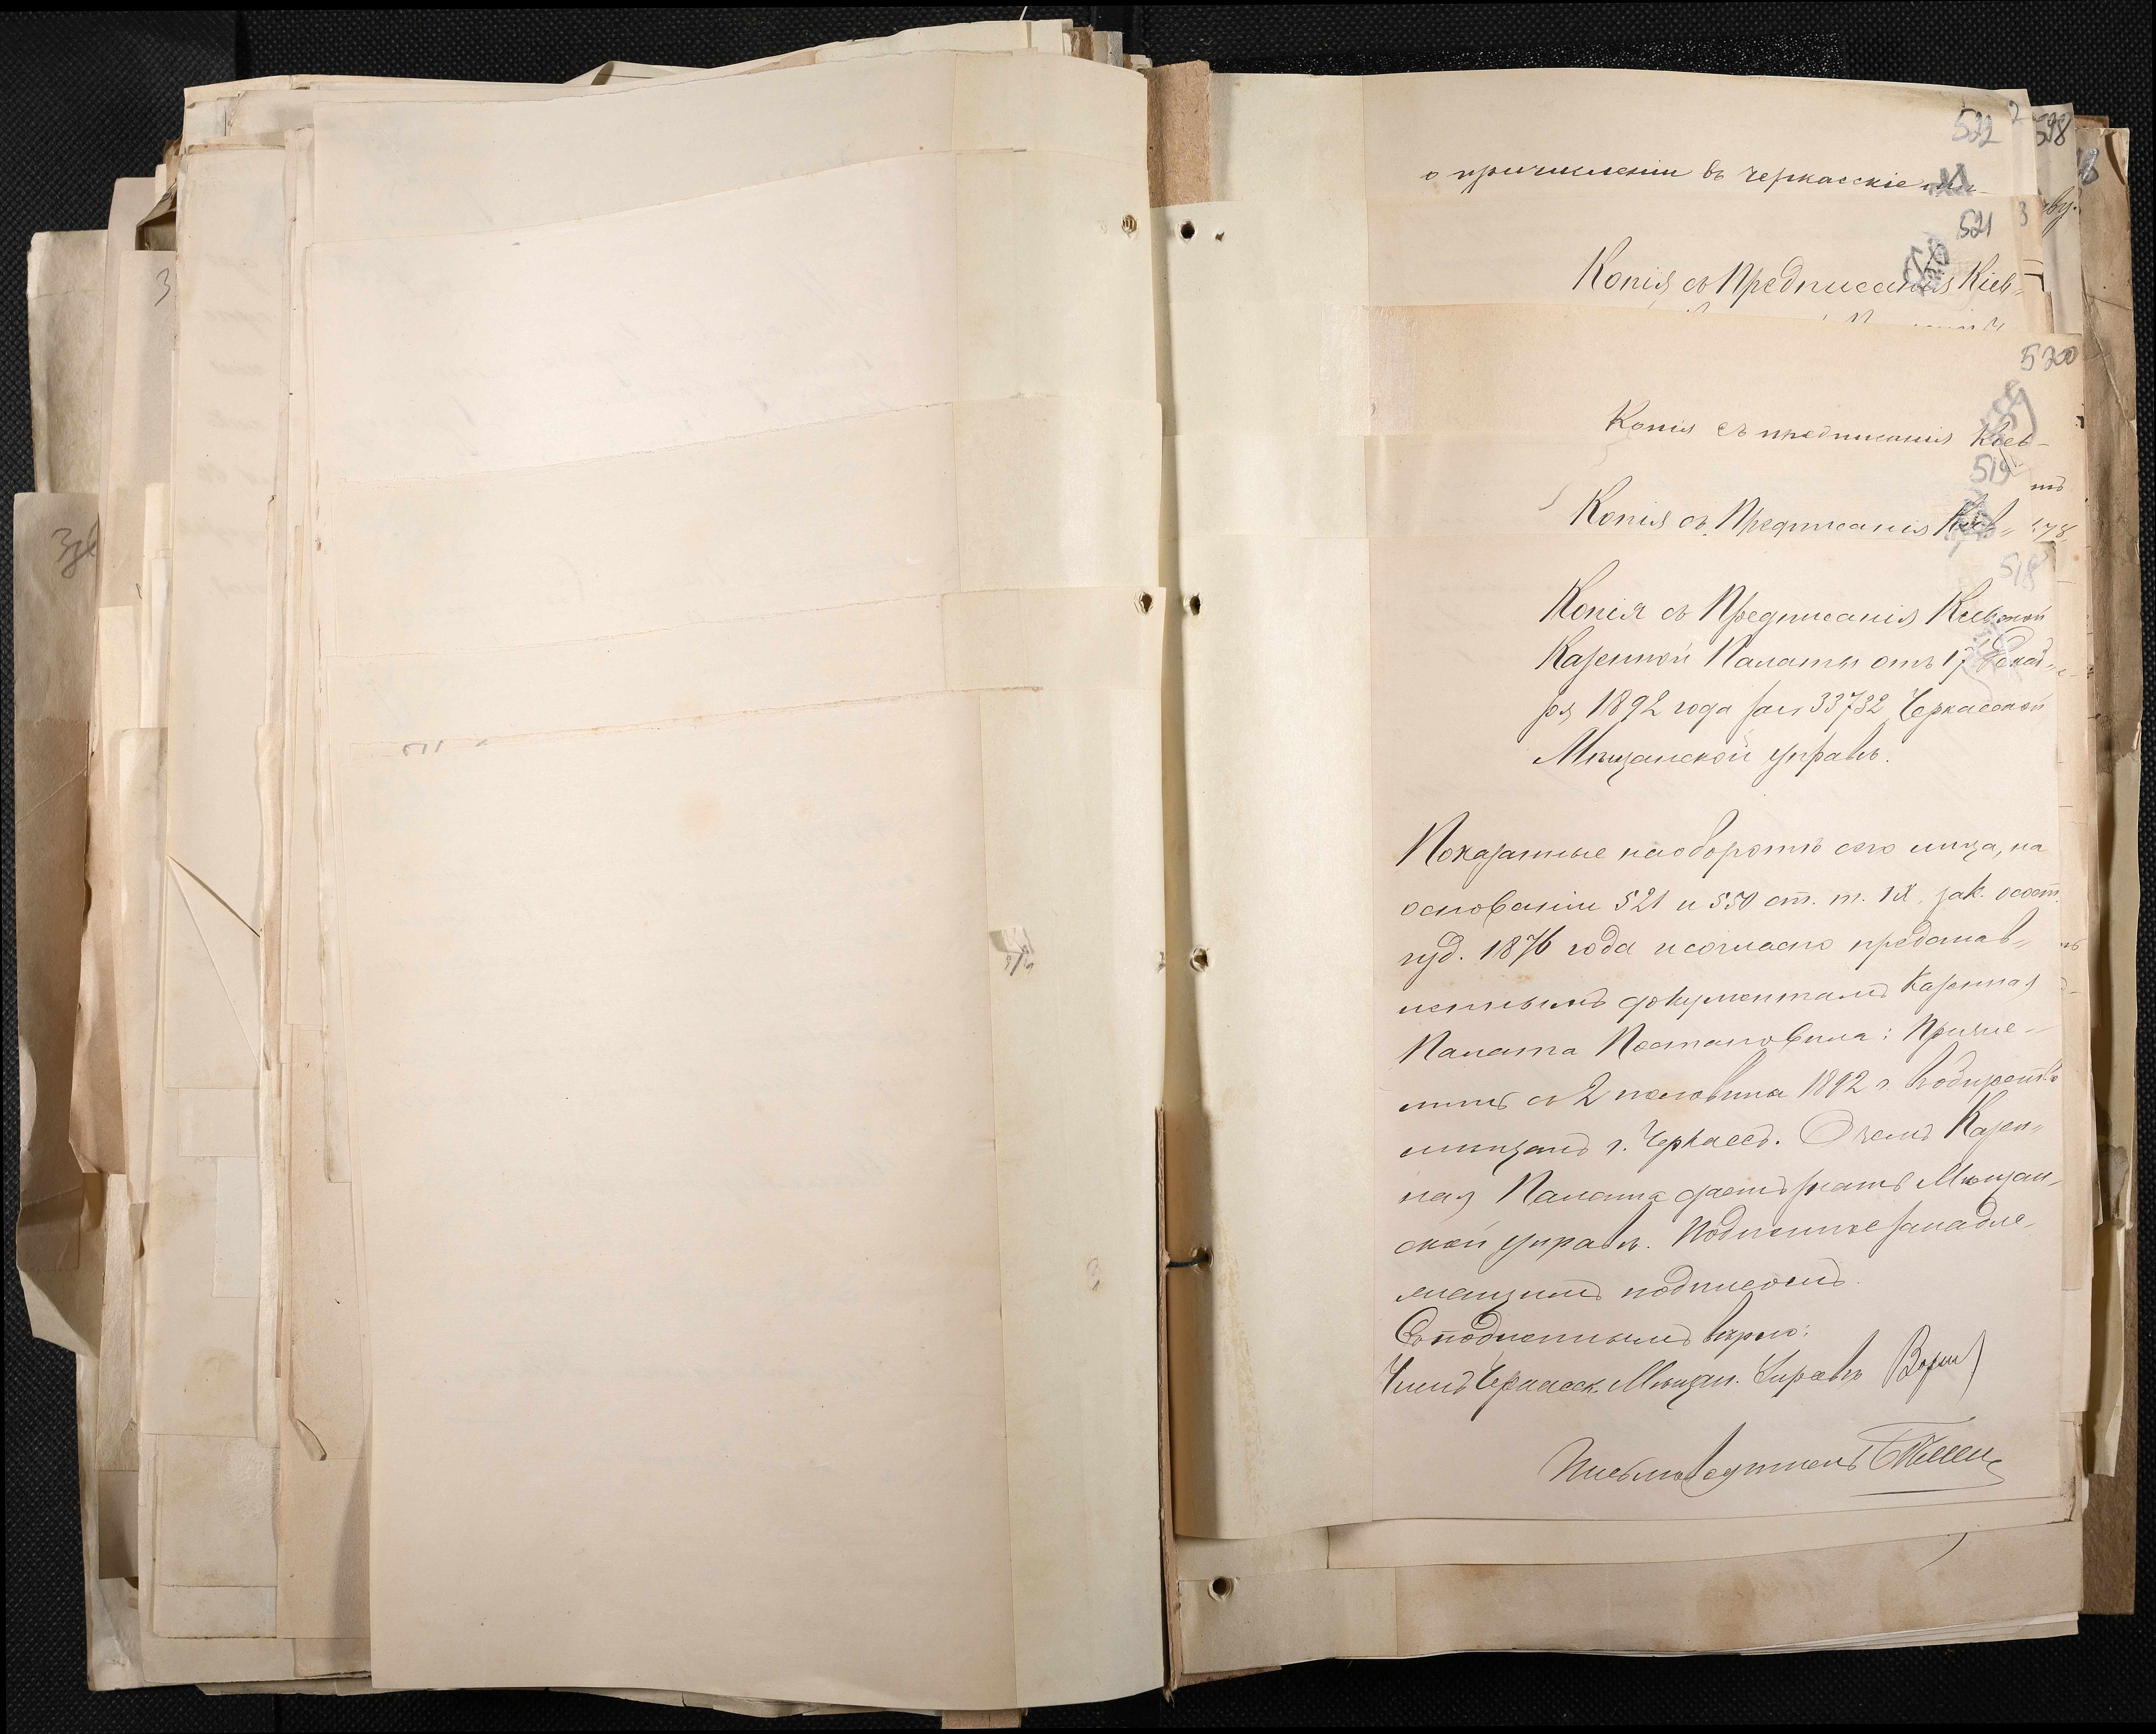 522
о причислении въ черкасскіе мѣ-
521
Копія съ Предписанія Кіев-
520
Копія съ предписанія Кіев-
519
Копія съ Предписанія Кіев-
518
Копія съ Предписанія Кіевской
Казенной Палаты отъ 17 Декаб-
ря 1892 года за № 33732 Черкасской
Мѣщанской управѣ.
Показанные наоборотѣ сего лица, на
основаніи 521 и 550 ст. т. IX, зак. о сост.
изд. 1876 года и согласно представ-
леннымъ документамъ Казенная
Палата Постановила: Причис-
лить съ 2 половины 1892 г. въ общество
мѣщанъ г. Черкассъ. О чемъ Казен-
ная Палата даетъ знать Мѣщан-
ской управѣ. Подлинное за надле-
жащимъ подписомъ.
Съ подлиннымъ вѣрно:
Членъ Черкасск. Мѣщан. Управы
Письмоводитель